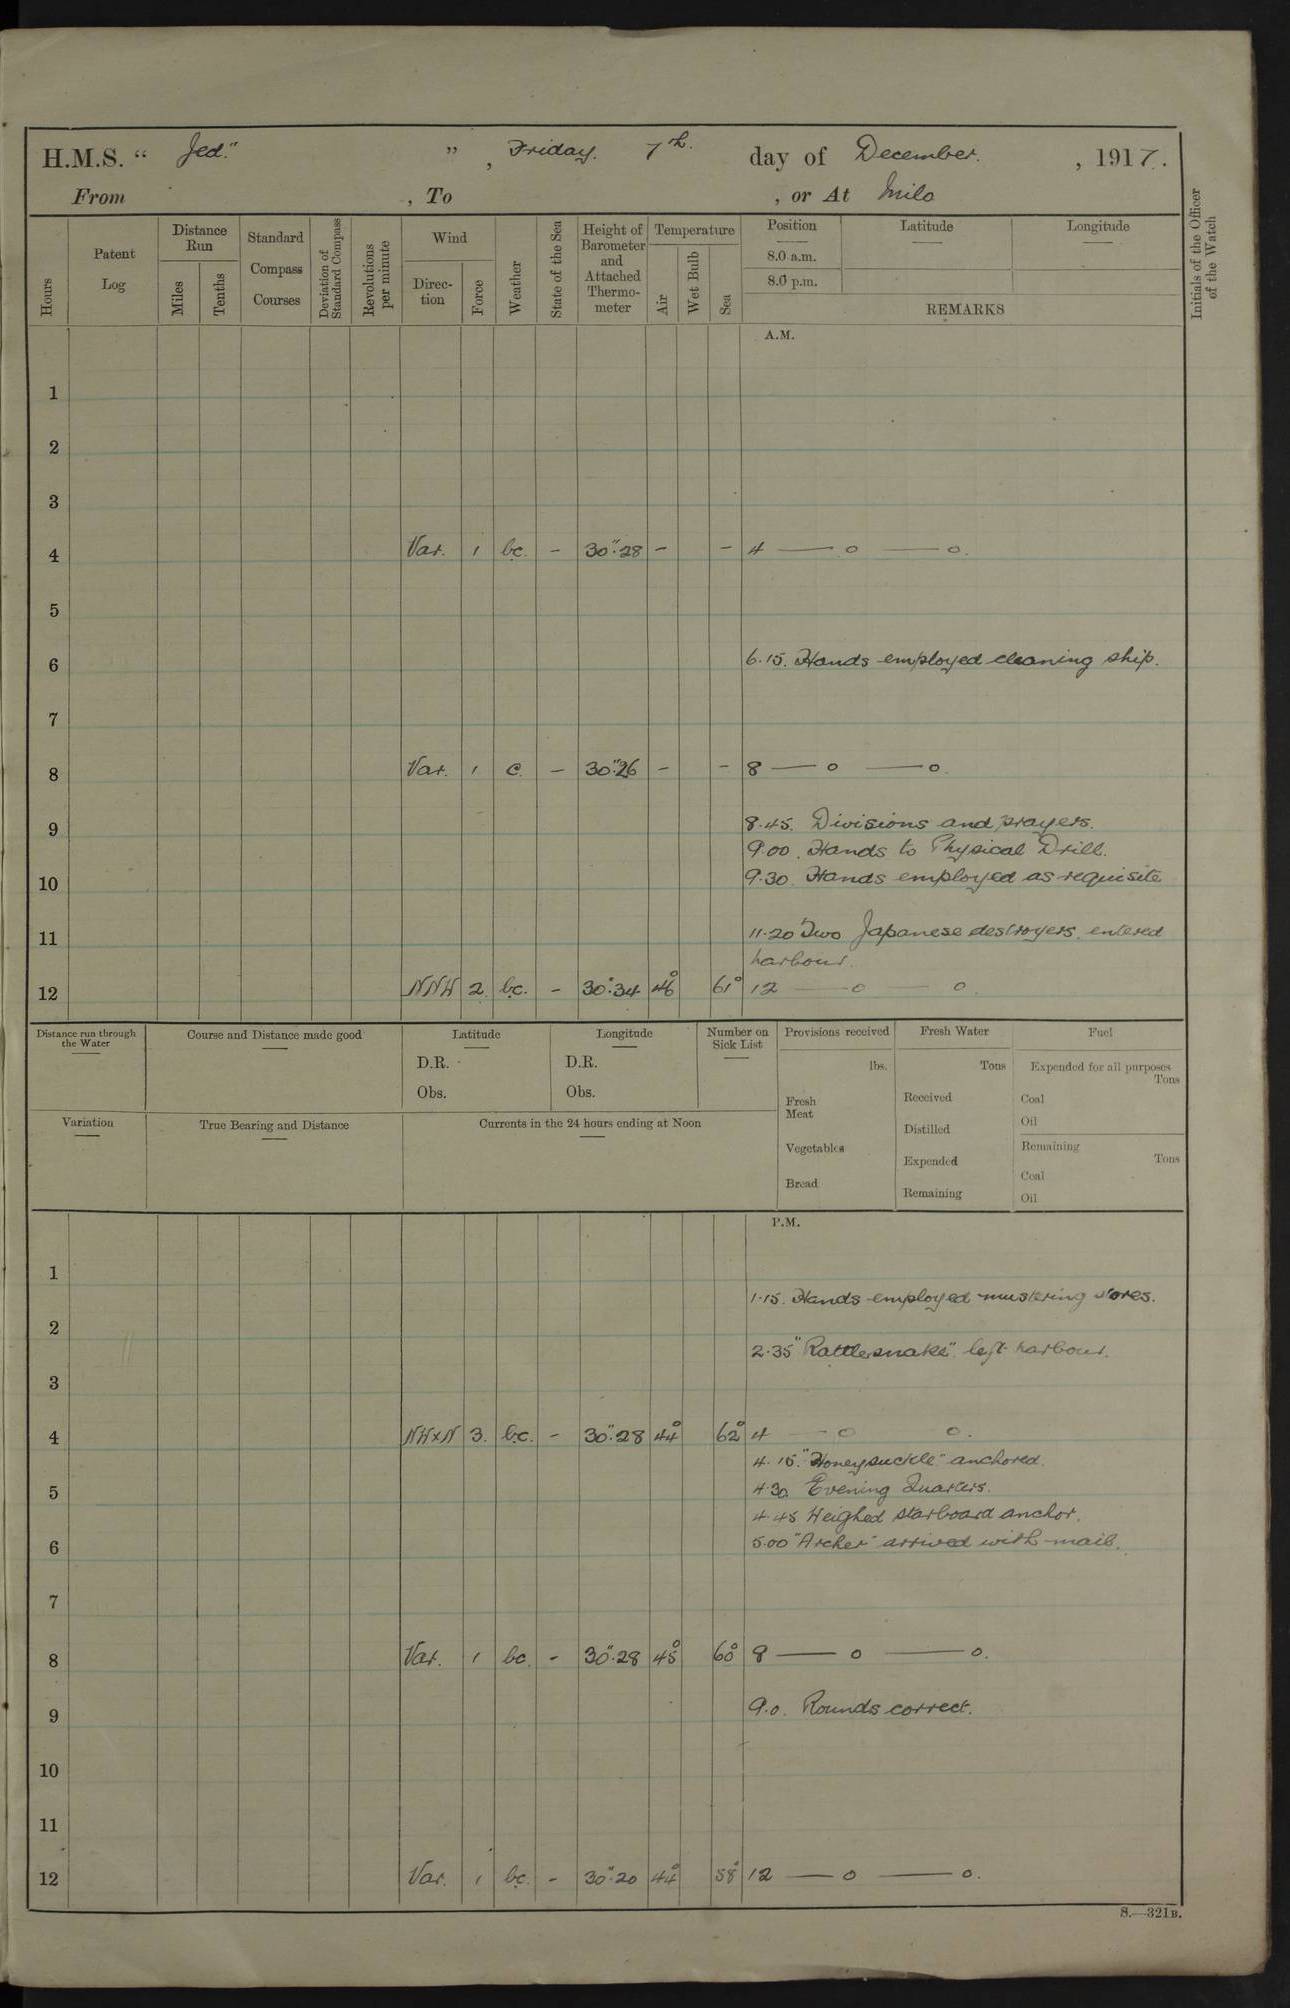 H.M.S. “ Jed." ” , Friday. 7th. day of December. , 1917.
From , To , or At Milo
Hours
Patent Log
Distance Run
Miles
Tenths
Standard Compass Courses
Deviation of Standard Compass
Revolutions per minute
Wind
Direc-tion
Force
Weather
State of the Sea
Height of Barometer and Attached Thermo-meter
Temperature
Air
Wet Bulb
Sea
Position
8.0 a.m.
8.0 p.m.
Latitude
Longitude
REMARKS
Initials of the Officer of the Watch
A.M.
1
2
3
4 Var. 1 bc. - 30".28 - - 4 — o — o.
5
6 6.15. Hands employed cleaning ship.
7
8 Var. 1 c. - 30".26 - - 8 — o — o.
9 8.45. Divisions and prayers.
9.00. Hands to Physical Drill.
10 9.30. Hands employed as requisite
11 11.20 Two Japanese destroyers entered
harbour.
12 NNW 2 bc. - 30".34 46° 61° 12 — o — o.
Distance run through the Water
Course and Distance made good
Latitude
D.R.
Obs.
Longitude
D.R.
Obs.
Number on Sick List
Provisions received
lbs.
Fresh Meat
Vegetables
Bread
Fresh Water
Tons
Received
Distilled
Expended
Remaining
Fuel
Expended for all purposes
Tons
Coal
Oil
Remaining
Tons
Coal
Oil
Variation
True Bearing and Distance
Currents in the 24 hours ending at Noon
P.M.
1
1.15. Hands employed mustering stores.
2
2.35 "Rattlesnake" left harbour.
3
4 NWxN 3. b.c. - 30".28 44° 62° 4 — o o.
4.15. "Honeysuckle" anchored.
5 4.30 Evening Quarters.
4.45 Weighed starboard anchor.
6 5.00 "Archer" arrived with mail.
7
8 Var. 1 bc. - 30".28 45° 60° 8 — o — o.
9 9.0. Rounds correct.
10
11
12 Var. 1 bc. - 30".20 44° 58° 12 — o — o.
S.—321B.